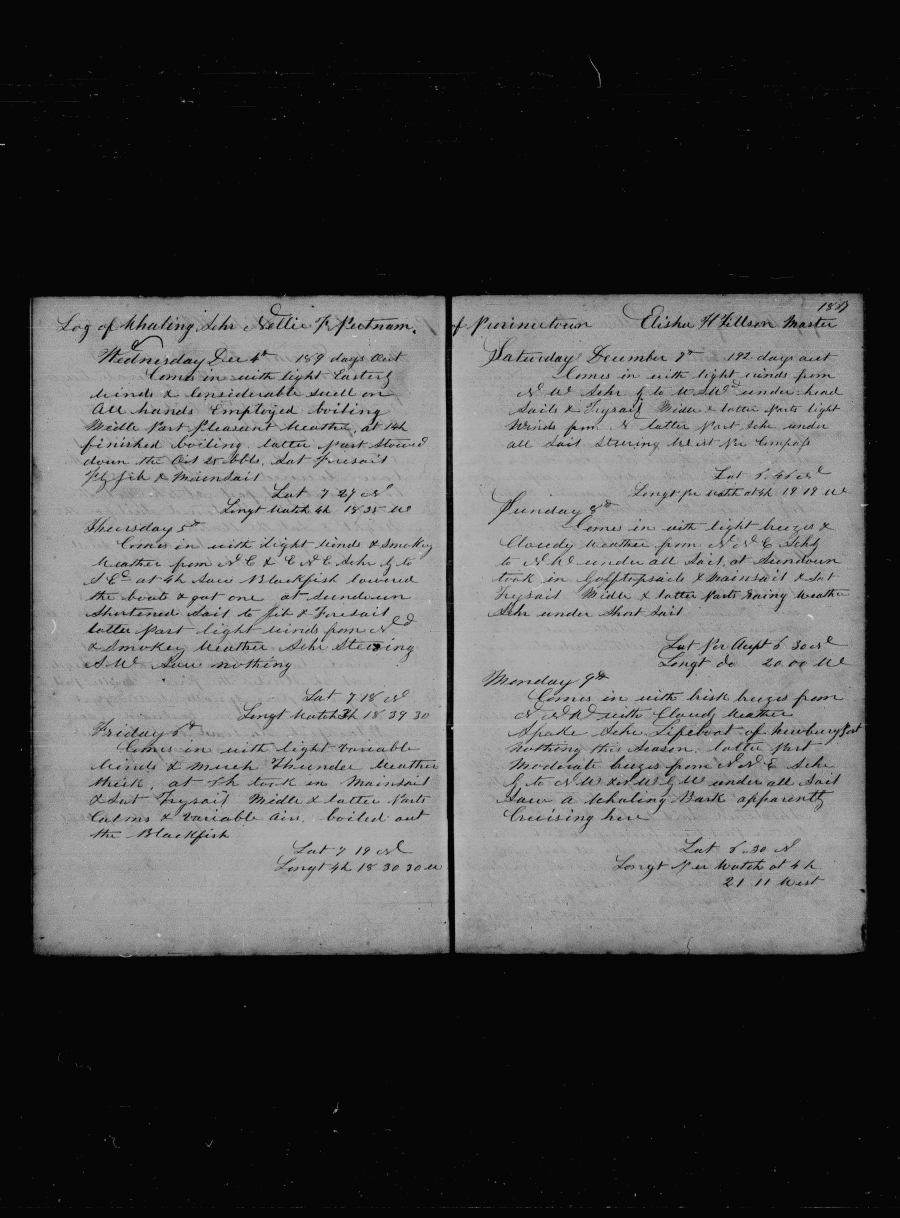 Log of Whaling Schr Nellie S Putnam.
Wednesday Dec 4th 189 days out
Comes in with light Easterly
Winds & Considerable swell on
All hands Employed boiling
Midle Part Pleasant Weather, at 14h
finished boiling. latter Part Stowed
down the Oil 25 bbls. Sat Foresail
Fly jib & Mainsail
Lat 7 27 N
Longt Watch 4h 18 35 W
Thursday 5th
Comes in with Light Winds & Smokey
Weather from N E & E N E Schr g to
S Ed at 4h Saw Blackfish lowered
the boats & got one at Sundown
Shortened Sail to Jib & Foresail
latter Part light winds from Nd
& Smokey Weather Schr Steering
S W Saw nothing
Lat 7 18 N
Longt Watch 3h 18 39 30
Friday 6th
Comes in with light Variable
Winds & Much Thunder Weather
thick, at 7h took in Mainsail
& Sat Trysail Midle & latter Parts
Calms & Variable Airs. boiled out
the Blackfish
Lat 7 19 N
Longt 4h 18 30 30 W
1867
of Provincetown Elisha H Tillson Master
Saturday December 7th 192 days out
Comes in with light winds from
N W Schr g to W S Wd under head
Sails & Trysail Midle & latter Parts light
Winds from N latter Part Schr under
all Sail Steering West Per Compass
Lat 6.46 N
Longt per Watch at 4h 19 19 W
Sunday 8th
Comes in with light breezes &
Cloudy Weather from N N E Schr g
to N W under all Sail, at Sundown
took in Gafftopsails & Mainsail & Sat
Trysail Midle & latter Parts Rainy Weather
Schr under Short Sail
Lat Per Acpt 6.30 N
Longt do 20.00 W
Monday 9th
Comes in with brisk breezes from
N N W with Cloudy Weather
Spoke Schr Lifeboat of Newbury Port
nothing this Season. latter Part
Moderate breezes from N N E Schr
g to N W & N W g W under all Sail
Saw a Whaling Bark apparently
Cruising here
Lat 6.30 N
Longt Per Watch at 4h
21 11 West